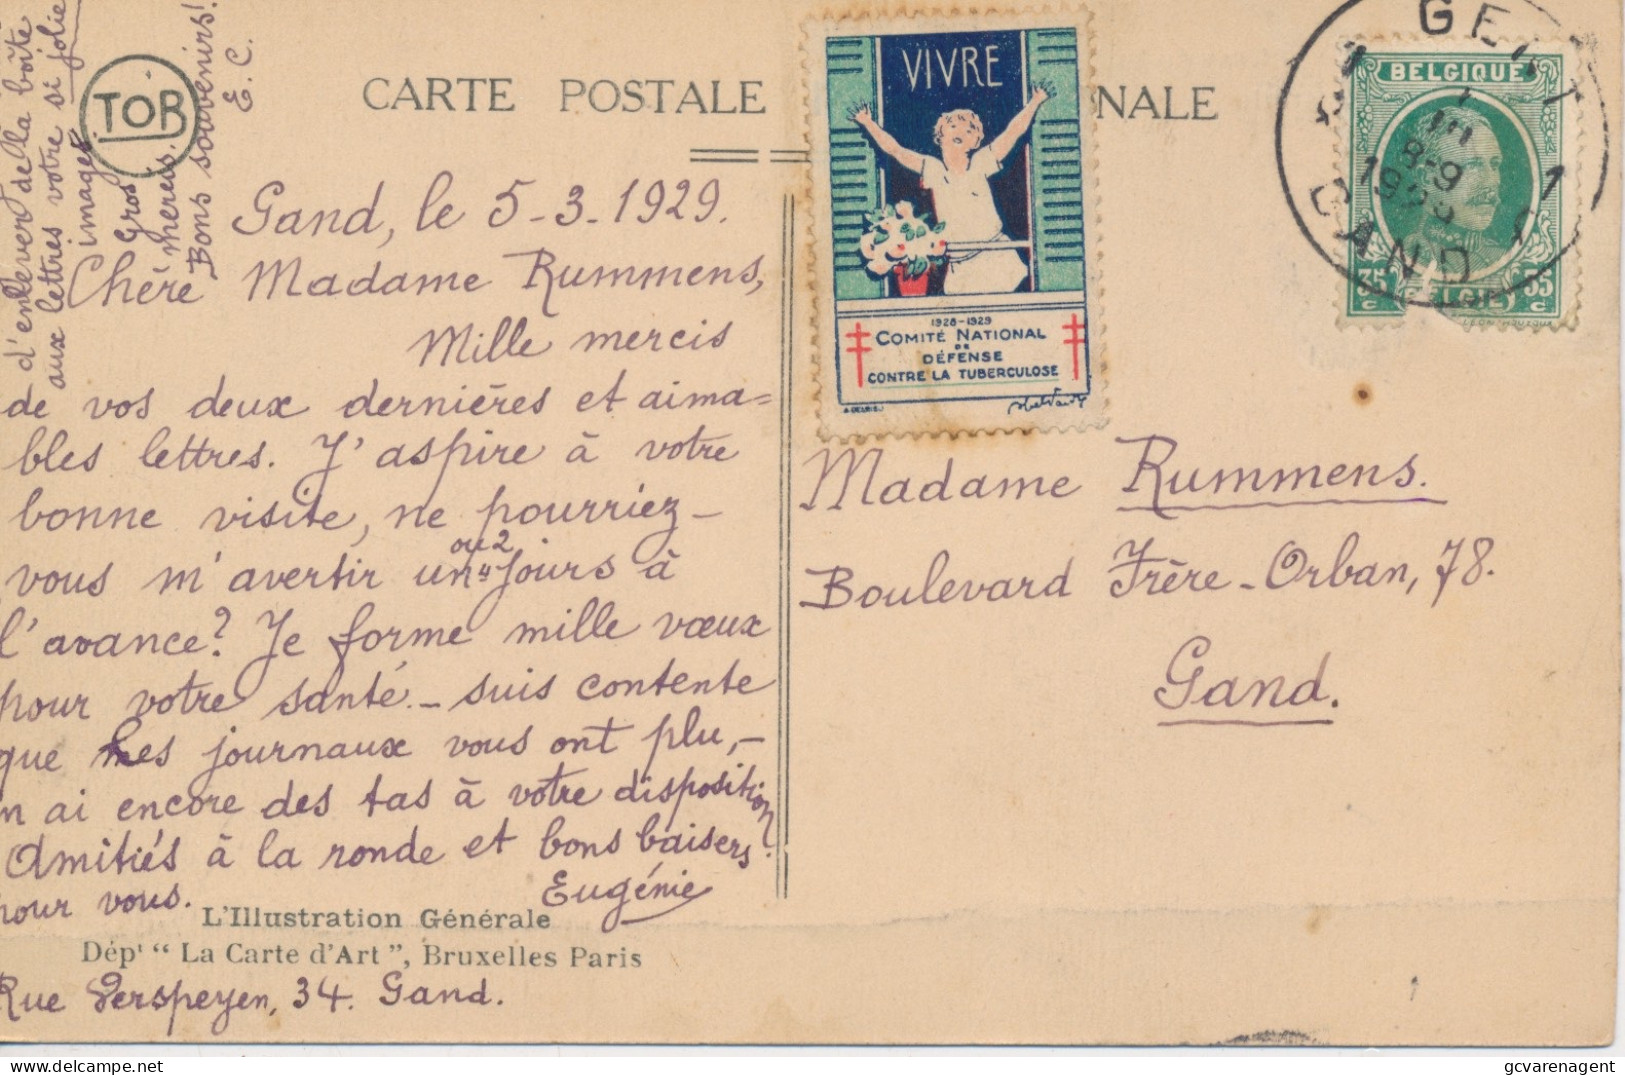 CARTE POSTALE
NALE
TOR
VIVRE
1928-1929
COMITÉ NATIONAL
DE
DÉFENSE
CONTRE LA TUBERCULOSE
BELGIQUE
35 c
35 c
GENT
8-9
GAND
Gand, le 5-3-1929.
Chère Madame Rummens,
Mille mercis
de vos deux dernières et aima=
bles lettres. J'aspire à votre
bonne visite, ne pourriez-
vous m'avertir un ou 2 jours à
l'avance? Je forme mille vœux
pour votre santé. - suis contente
que mes journaux vous ont plu, -
n ai encore des tas à votre disposition
Amitiés à la ronde et bons baisers
pour vous.
Eugénie
L'Illustration Générale
Dépt “ La Carte d'Art ”, Bruxelles Paris
Rue Verspeyen, 34. Gand.
d'enlever de la boîte
aux lettres votre si jolie
image.
Gros
Bons souvenirs!
E. C.
Madame Rummens.
Boulevard Frère-Orban, 78.
Gand.
gcvarenagent